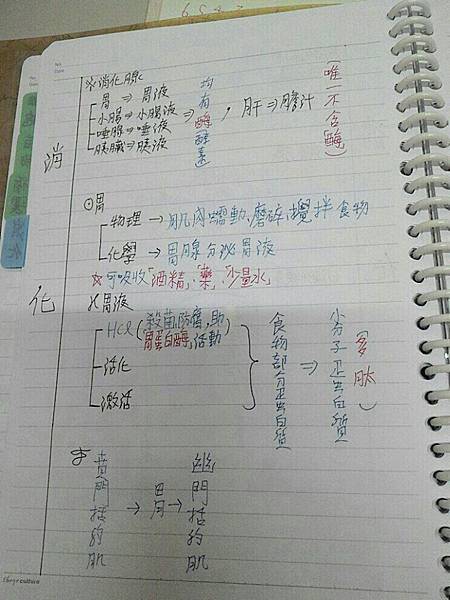 ※消化腺
胃 ⇒ 胃液
小腸 ⇒ 小腸液
唾腺 ⇒ 唾液
胰臟 ⇒ 胰液
⇒ 均有酶酵素 , 肝 ⇒ 膽汁 (唯一不含酶)
消
化
⊙胃
物理 → 肌肉蠕動、磨碎攪拌食物
化學 → 胃腺分泌胃液
※可吸收「酒精」、「藥」、「少量水」
※胃液
HCl (殺菌,防腐,助
胃蛋白酶活動)
活化
激活
食物部分蛋白質 ⇒ 小分子蛋白質 (多肽)
賁門括約肌 → 胃 → 幽門括約肌